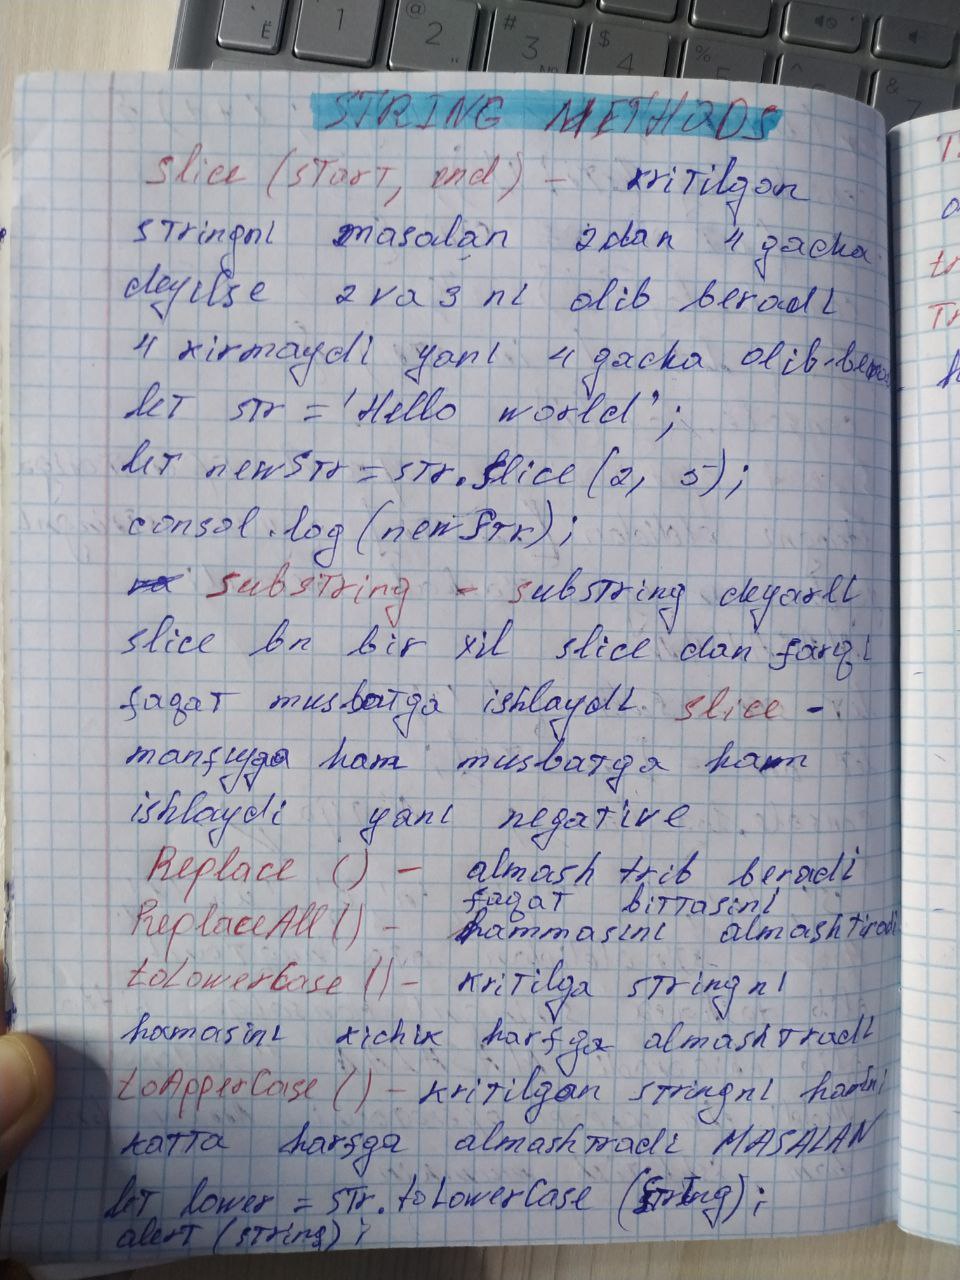 STRING METHODS
Slice (start, end) - kritilgan
stringni masalan 2dan 4 gacha
deyilse 2 va 3 ni olib beradi
4 kirmaydi yani 4 gacha olib
let str = 'Hello world';
let newStr = str.Slice (2, 5);
consol.log (newStr);
substring - substring deyarli
slice bn bir xil slice dan farqi
faqat musbatga ishlaydi slice -
manfiyga ham musbatga ham
ishlaydi yani negative
Replace () - almashtrib beradi
faqat bittasini
ReplaceAll () - hammasini almashtiradi
toLowerCase () - kritilga stringni
hamasini kichik harfga almashtradi
toApperCase () - kritilgan stringni
katta harfga almashtradi MASALAN
let lower = str.toLowerCase (String);
alert (string);